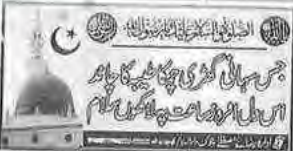 الصلوٰۃ والسلام علیک یا رسول اللہ
جس سہانی گھڑی چمکا طیبہ کا چاند
اس دل افروز ساعت پہ لاکھوں سلام